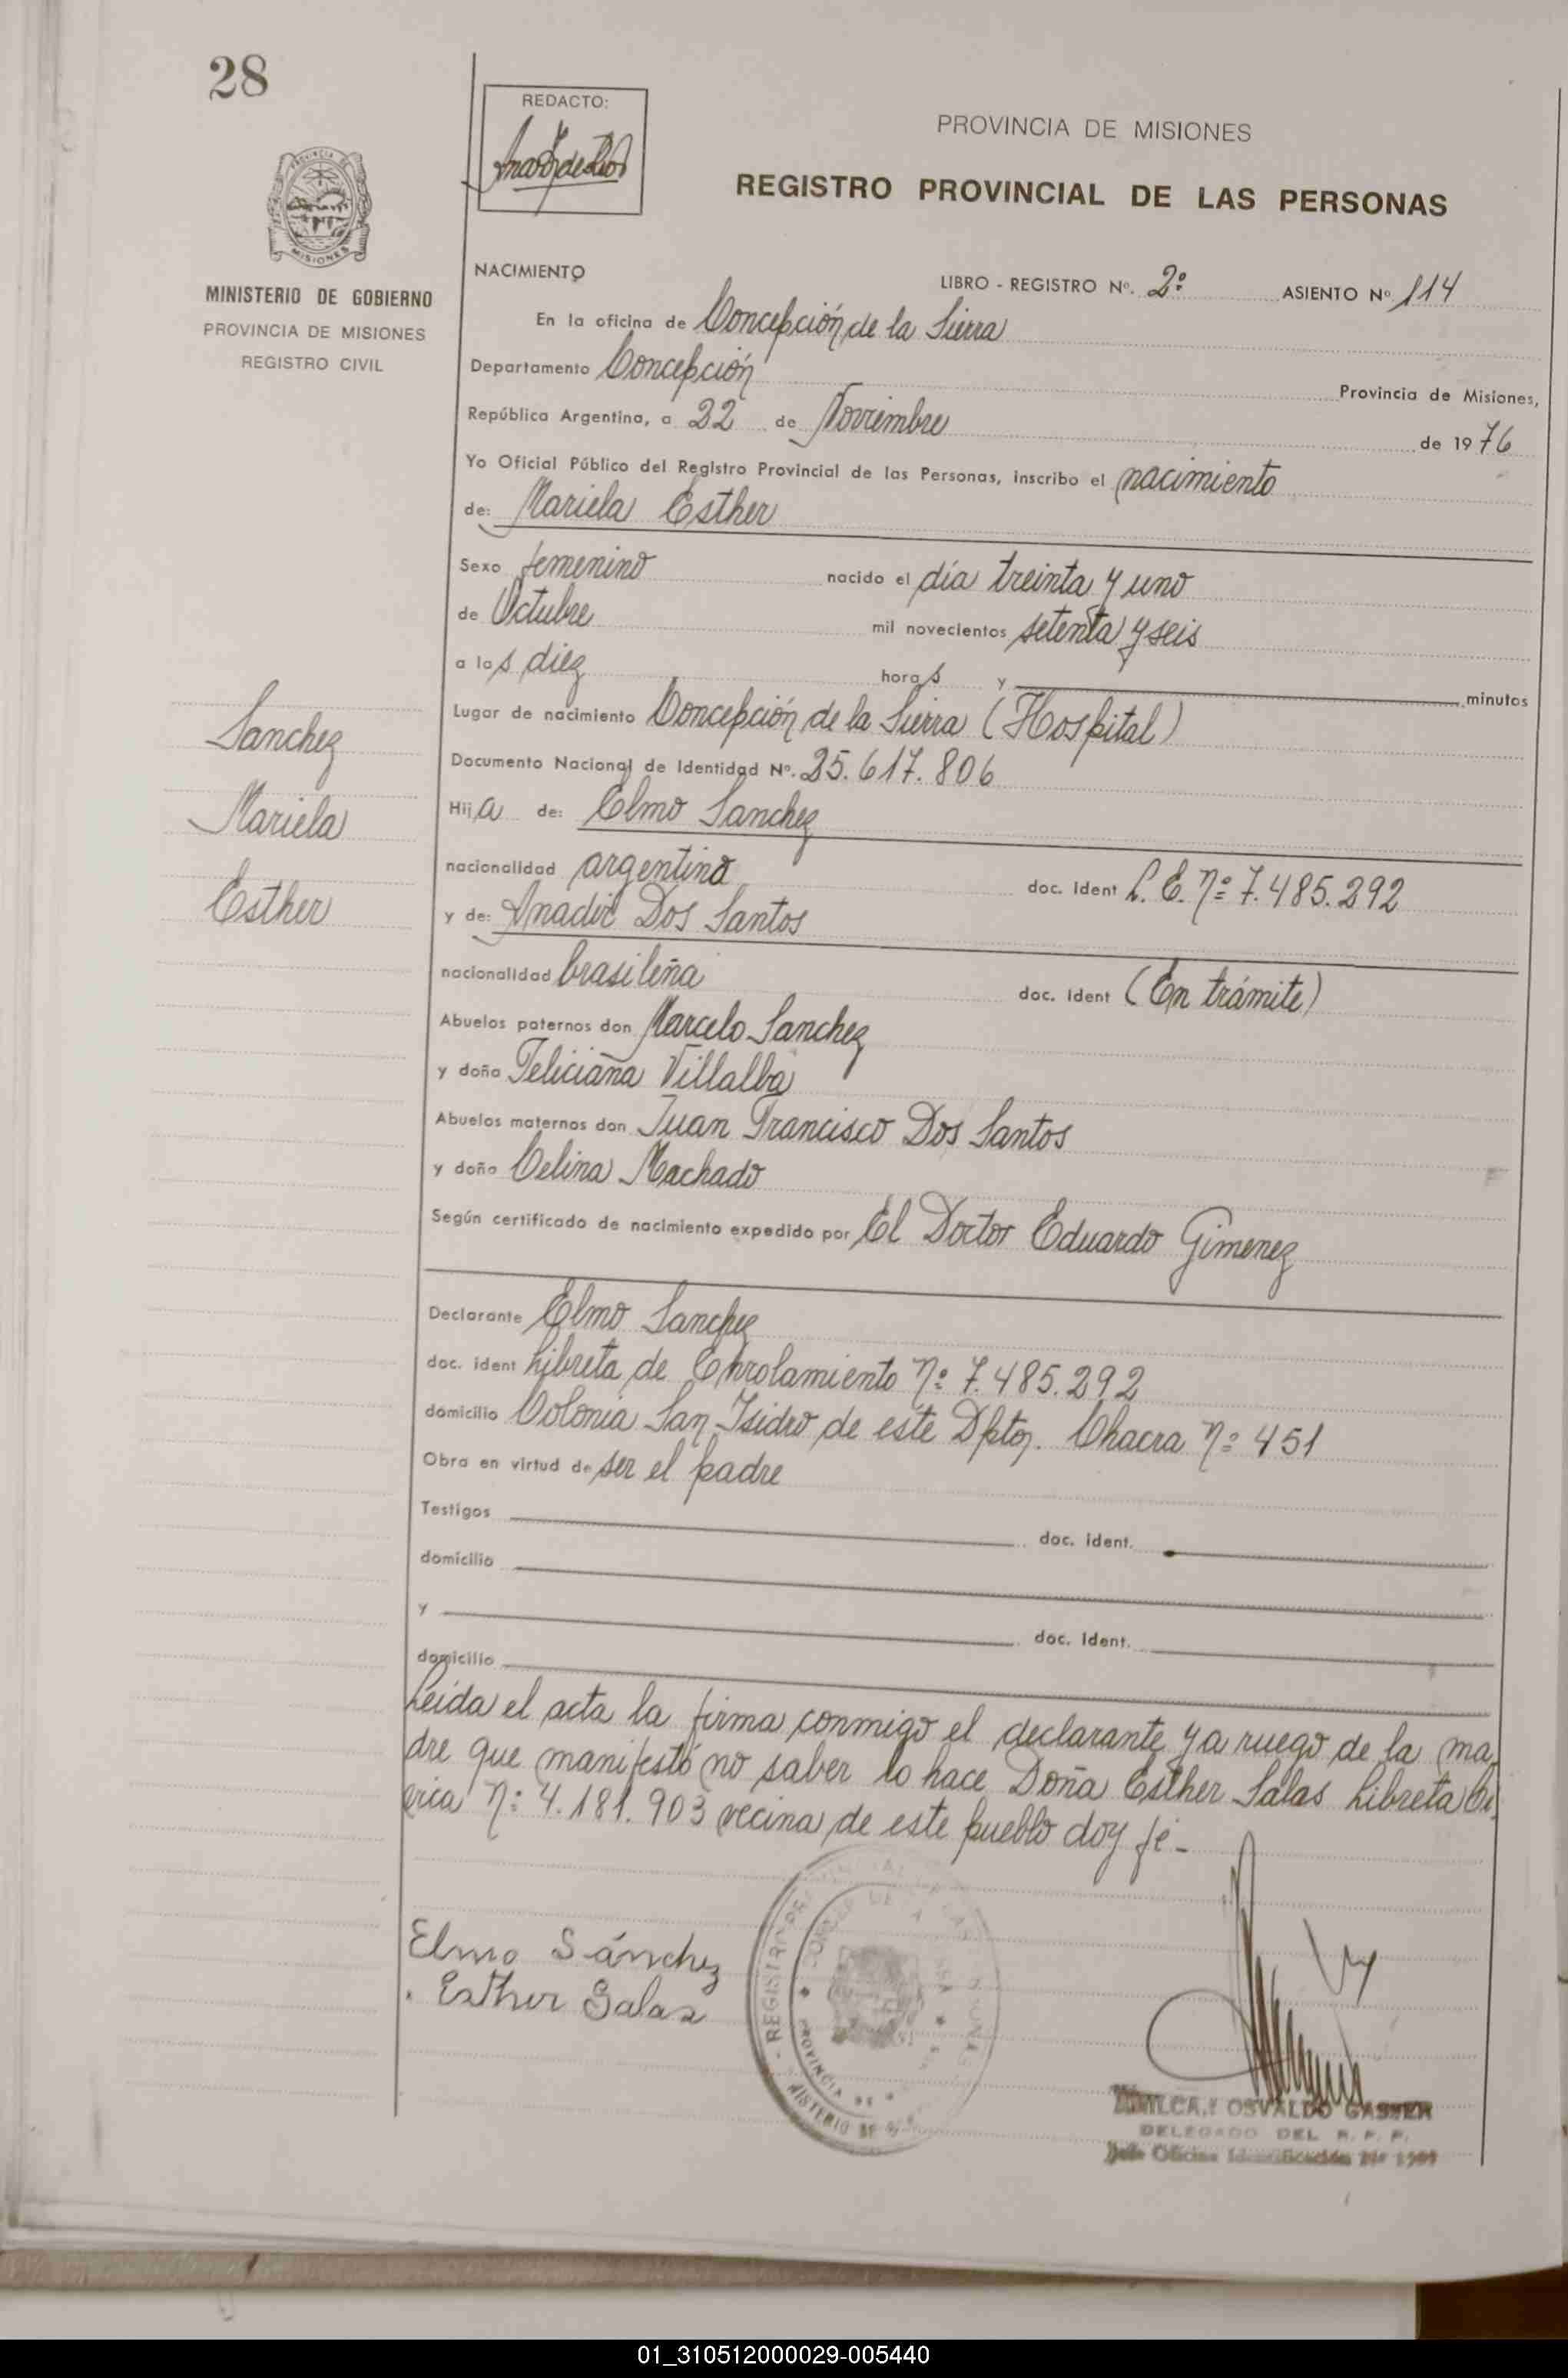 28
REDACTO:
PROVINCIA DE MISIONES
REGISTRO PROVINCIAL DE LAS PERSONAS
MISIONES
MINISTERIO DE GOBIERNO
PROVINCIA DE MISIONES
REGISTRO CIVIL
NACIMIENTO
LIBRO - REGISTRO Nº. 2º ASIENTO Nº 114
En la oficina de Concepción de la Sierra
Departamento Concepción Provincia de Misiones,
República Argentina, a 22 de Noviembre de 1976
Yo Oficial Público del Registro Provincial de las Personas, inscribo el nacimiento
de: Mariela Esther
Sexo femenino nacido el día treinta y uno
de Octubre mil novecientos setenta y seis
a las diez horas y minutos
Lugar de nacimiento Concepción de la Sierra (Hospital)
Documento Nacional de Identidad Nº. 25.617.806
Sanchez
Mariela
Esther
Hija de: Elmo Sanchez
nacionalidad argentina doc. Ident L.E. nº 7.485.292
y de: Anadir Dos Santos
nacionalidad brasileña doc. Ident (En trámite)
Abuelos paternos don Marcelo Sanchez
y doña Feliciana Villalba
Abuelos maternos don Juan Francisco Dos Santos
y doña Celina Machado
Según certificado de nacimiento expedido por El Doctor Eduardo Gimenez
Declarante Elmo Sanchez
doc. ident Libreta de Enrolamiento nº 7.485.292
domicilio Colonia San Isidro de este Dpto. Chacra nº 451
Obra en virtud de ser el padre
Testigos doc. ident.
domicilio
y doc. Ident.
domicilio
Leída el acta la firma conmigo el declarante y a ruego de la ma
dre que manifestó no saber lo hace Doña Esther Salas Libreta Cí
vica nº 4.181.903 vecina de este pueblo doy fé-
Elmo Sánchez
Esther Salas
OSVALDO GASSER
DELEGADO DEL R. P. P.
Jefe Oficina Identificación
01_310512000029-005440